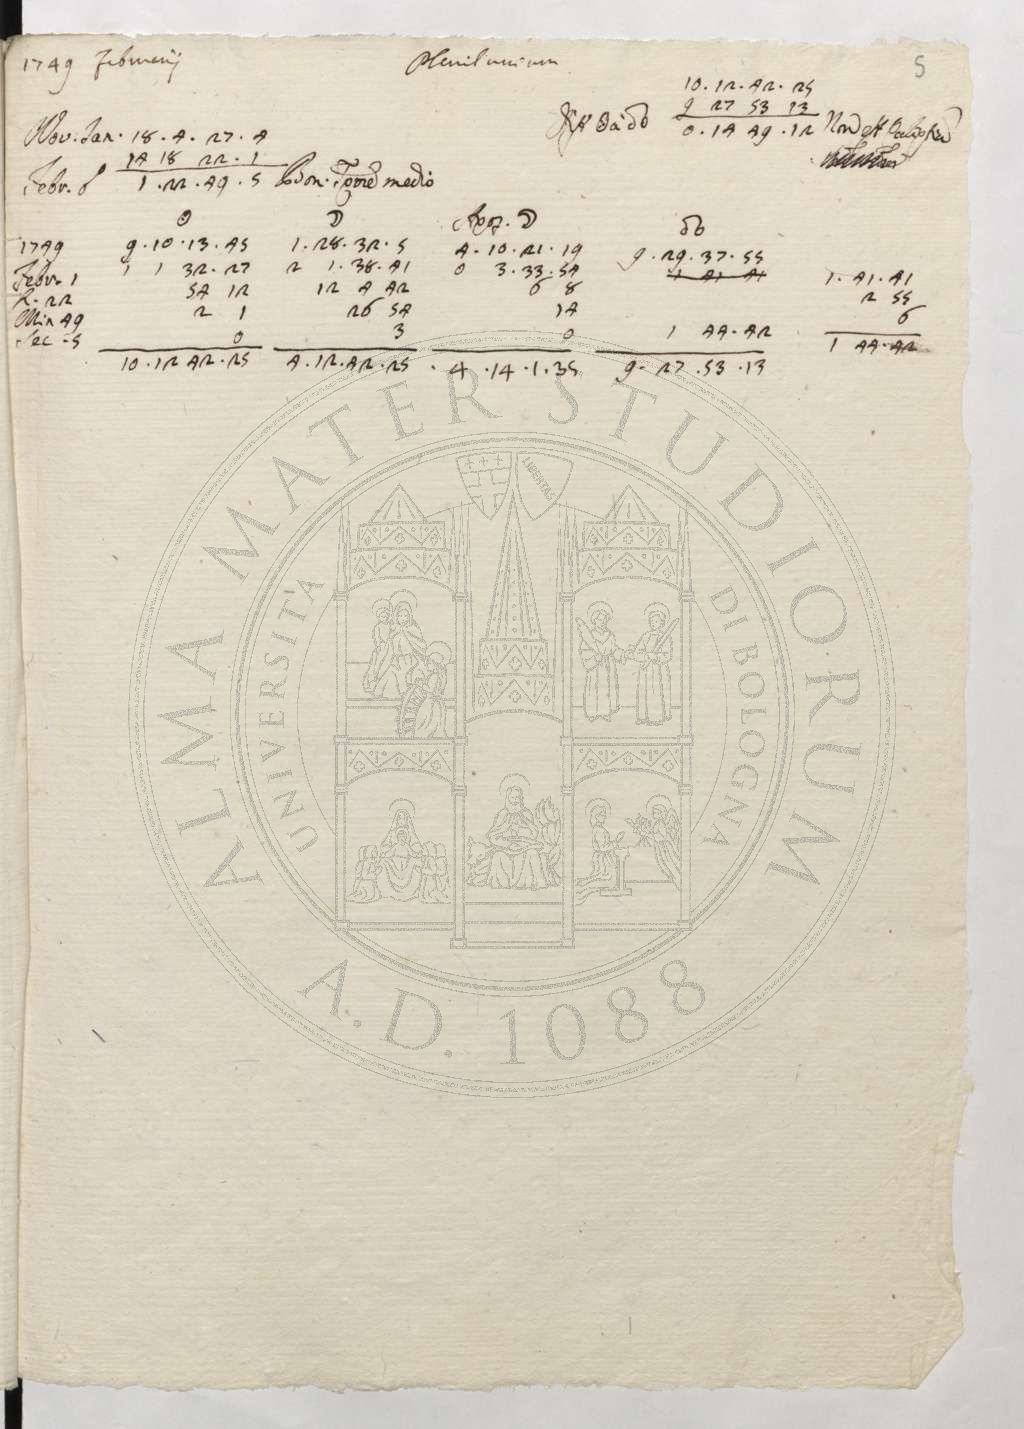 5
1749 Februarij Plenilunium
10.12.42.25
9 27 53 13
0.14 49.12
Nov. Jan. 18.4.27.4
14 18 22.1
Febr. 1.22.49.5 Bon. Temp. medio
☉ ☽ Apog. ☽ ☊
1749 9.10.13.45 1.28.32.5 4.10.21.19 9.29.37.55
Febr. 1 1 1 32.27 2 1.38.41 0 3.33.54 1 41 41 1.41.41
H. 22 54 12 12 4 42 6 8 2 55
Min 49 2 1 26 54 14 6
Sec. 5 0 3 0 1 44.42 1 44.42
10.12 42.25 4.12.42.25 4.14.1.35 9.27.53.13
ALMA MATER STUDIORUM
UNIVERSITÀ DI BOLOGNA
LIBERTAS
A.D. 1088